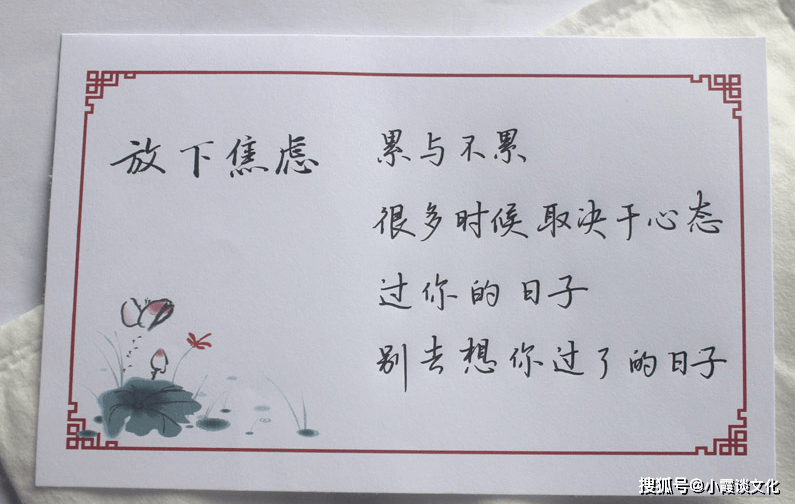 放下焦虑
累与不累
很多时候取决于心态
过你的日子
别去想你过了的日子
搜狐号@小霞谈文化